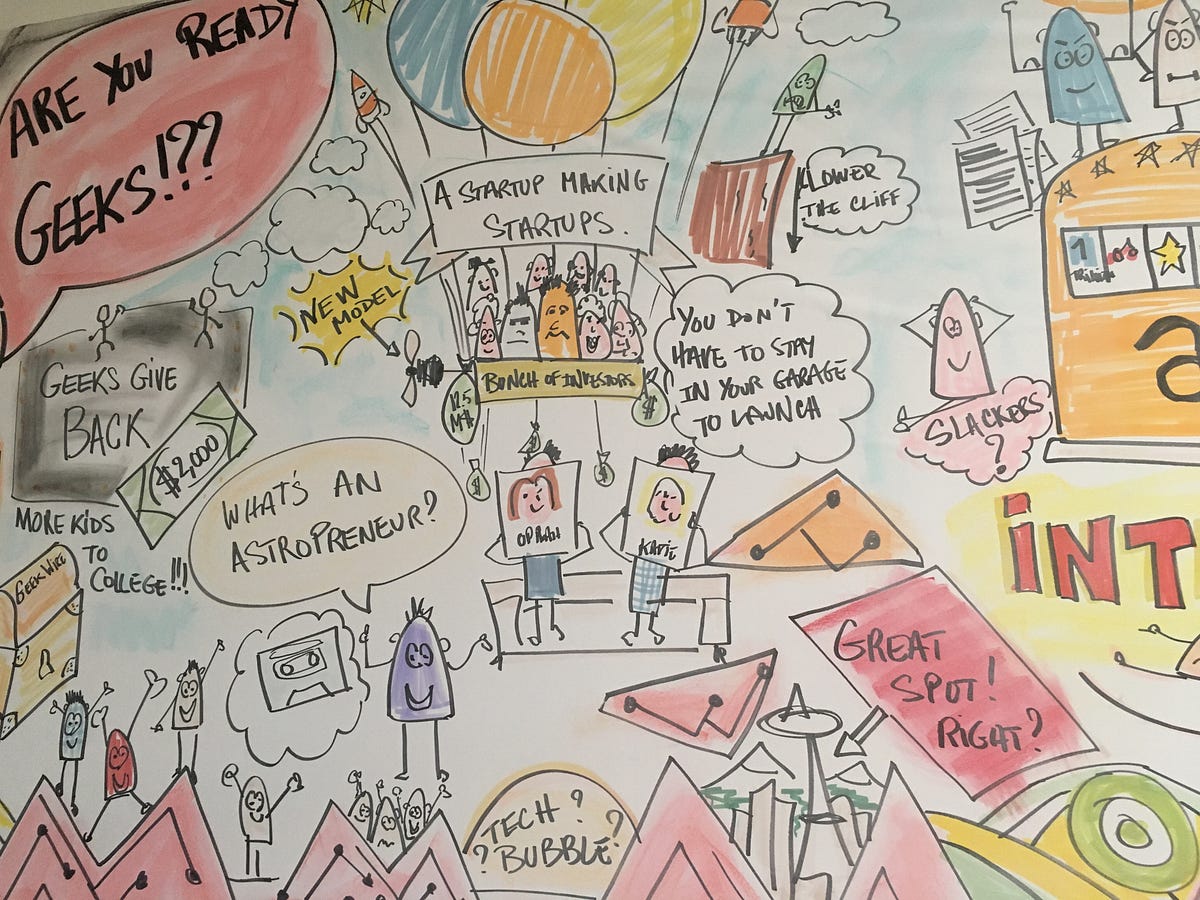 ARE YOU READY
GEEKS!??
A STARTUP MAKING
STARTUPS.
LOWER
THE CLIFF
NEW
MODEL
BUNCH OF INVESTORS
$
$
$
YOU DON'T
HAVE TO STAY
IN YOUR GARAGE
TO LAUNCH
GEEKS GIVE
BACK
$2,000
MORE KIDS
TO
COLLEGE!!!
GEEKWIRE
WHAT'S AN
ASTROPRENEUR?
OPRAH
KATIE
SLACKERS
?
1
a
INT
GREAT
SPOT!
RIGHT?
TECH?
? BUBBLE?